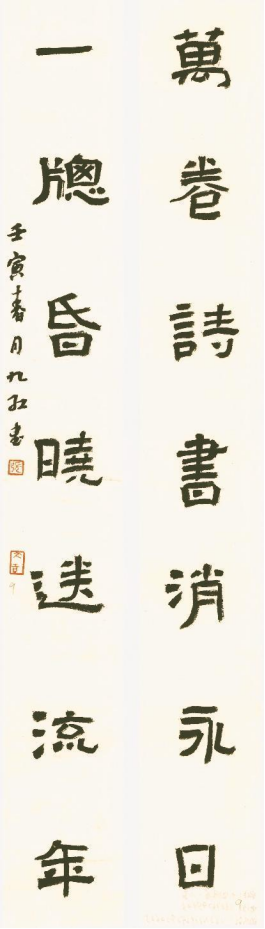 萬卷詩書消永日
一牕昏曉送流年
壬寅春月九松書